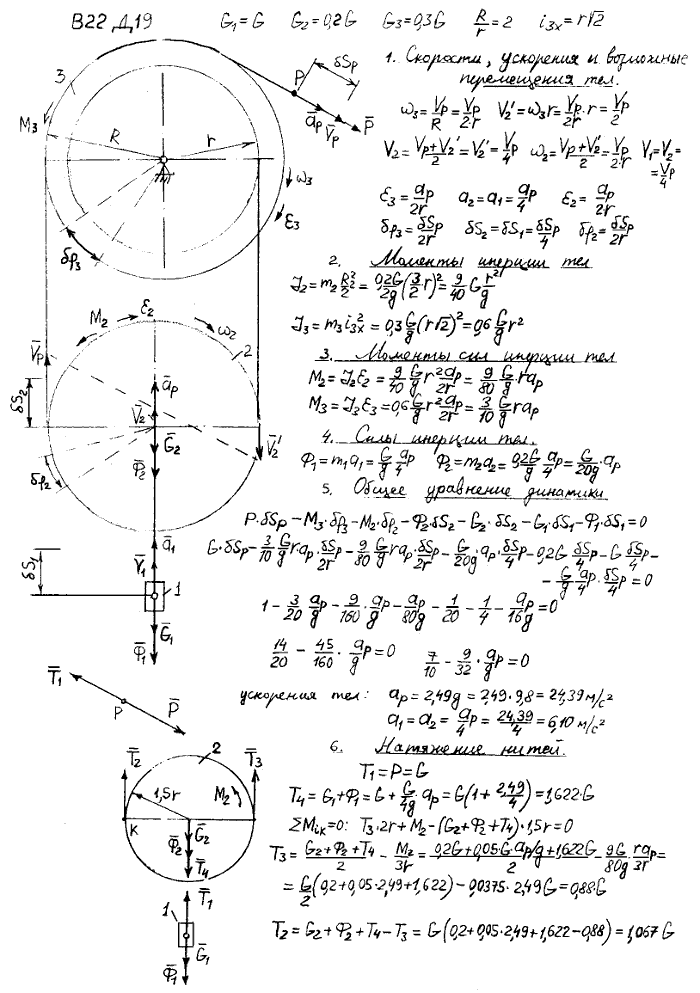 В22 Д19 G₁=G G₂=0,2G G₃=0,3G R/r=2 i₃ₓ=r√2
1. Скорости, ускорения и возможные
перемещения тел.
ω₃=Vp/R=Vp/2r V₂'=ω₃r=Vp/2r·r=Vp/2
V₂=Vp+V₂'/2=V₂'=Vp/4 ω₂=Vp+V₂'/2=Vp/2·r V₁=V₂=
=Vp/4
ε₃=ap/2r a₂=a₁=ap/4 ε₂=ap/2r
δφ₃=δSp/2r δS₂=δS₁=δSp/4 δφ₂=δSp/2r
2. Моменты инерции тел
J₂=m₂R₂²/2=0,2G/2g(3/2 r)²=9/40 G r²/g
J₃=m₃i₃ₓ²=0,3G/g(r√2)²=0,6G/g r²
3. Моменты сил инерции тел
M₂=J₂ε₂=9/40 G/g r² ap/2r=9/80 G/g rap
M₃=J₂ε₃=0,6G/g r² ap/2r=3/10 G/g rap
4. Силы инерции тел.
Φ₁=m₁a₁=G/g ap/4 Φ₂=m₂a₂=0,2G/g ap/4=G/20g·ap
5. Общее уравнение динамики
P·δSp−M₃·δφ₃−M₂·δφ₂−Φ₂·δS₂−G₂·δS₂−G₁·δS₁−Φ₁·δS₁=0
G·δSp−3/10 G/g rap·δSp/2r−9/80 G/g rap·δSp/2r−G/20g·ap·δSp/4−0,2G δSp/4−G δSp/4−
−G/g ap/4·δSp/4=0
1−3/20 ap/g−9/160·ap/g−ap/80g−1/20−1/4−ap/16g=0
14/20−45/160·ap/g=0 7/10−9/32·ap/g=0
ускорения тел: ap=2,49g=2,49·9,8=24,39 м/с²
a₁=a₂=ap/4=24,39/4=6,10 м/с²
6. Натяжение нитей.
T₁=P=G
T₄=G₁+Φ₁=G+G/4g ap=G(1+2,49/4)=1,622·G
ΣMᵢₖ=0: T₃·2r+M₂−(G₂+Φ₂+T₄)·1,5r=0
T₃=G₂+Φ₂+T₄/2−M₂/3r=0,2G+0,05G·ap/g+1,622G/2−9G/80g·rap/3r=
=G/2(0,2+0,05·2,49+1,622)−0,0375·2,49G=0,88·G
T₂=G₂+Φ₂+T₄−T₃=G(0,2+0,05·2,49+1,622−0,88)=1,067 G
3
M₃
R
r
P
δSp
āp
V̄p
P̄
ω₃
ε₃
δφ₃
M₂
ε₂
ω₂
2
V̄p
āp
δS₂
V̄₂
Ḡ₂
Φ̄₂
V̄₂'
δφ₂
ā₁
V̄₁
δS₁
1
Ḡ₁
Φ̄₁
T̄₁
P
P̄
T̄₂
2
T̄₃
1,5r
M₂
K
Ḡ₂
Φ̄₂
T̄₄
T̄₁
1
Ḡ₁
Φ̄₁